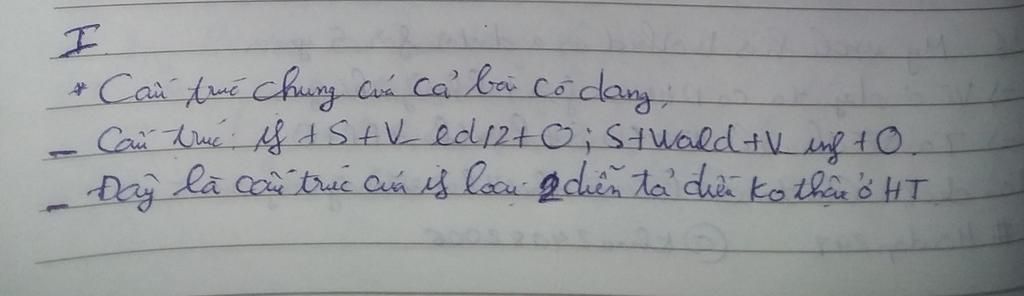 I
* Cấu trúc chung của cả bài có dạng.
- Cấu trúc: If + S + V ed/2 + O ; S + would + V inf + O.
- Đây là cấu trúc của if loại 2 diễn tả điều ko thật ở HT